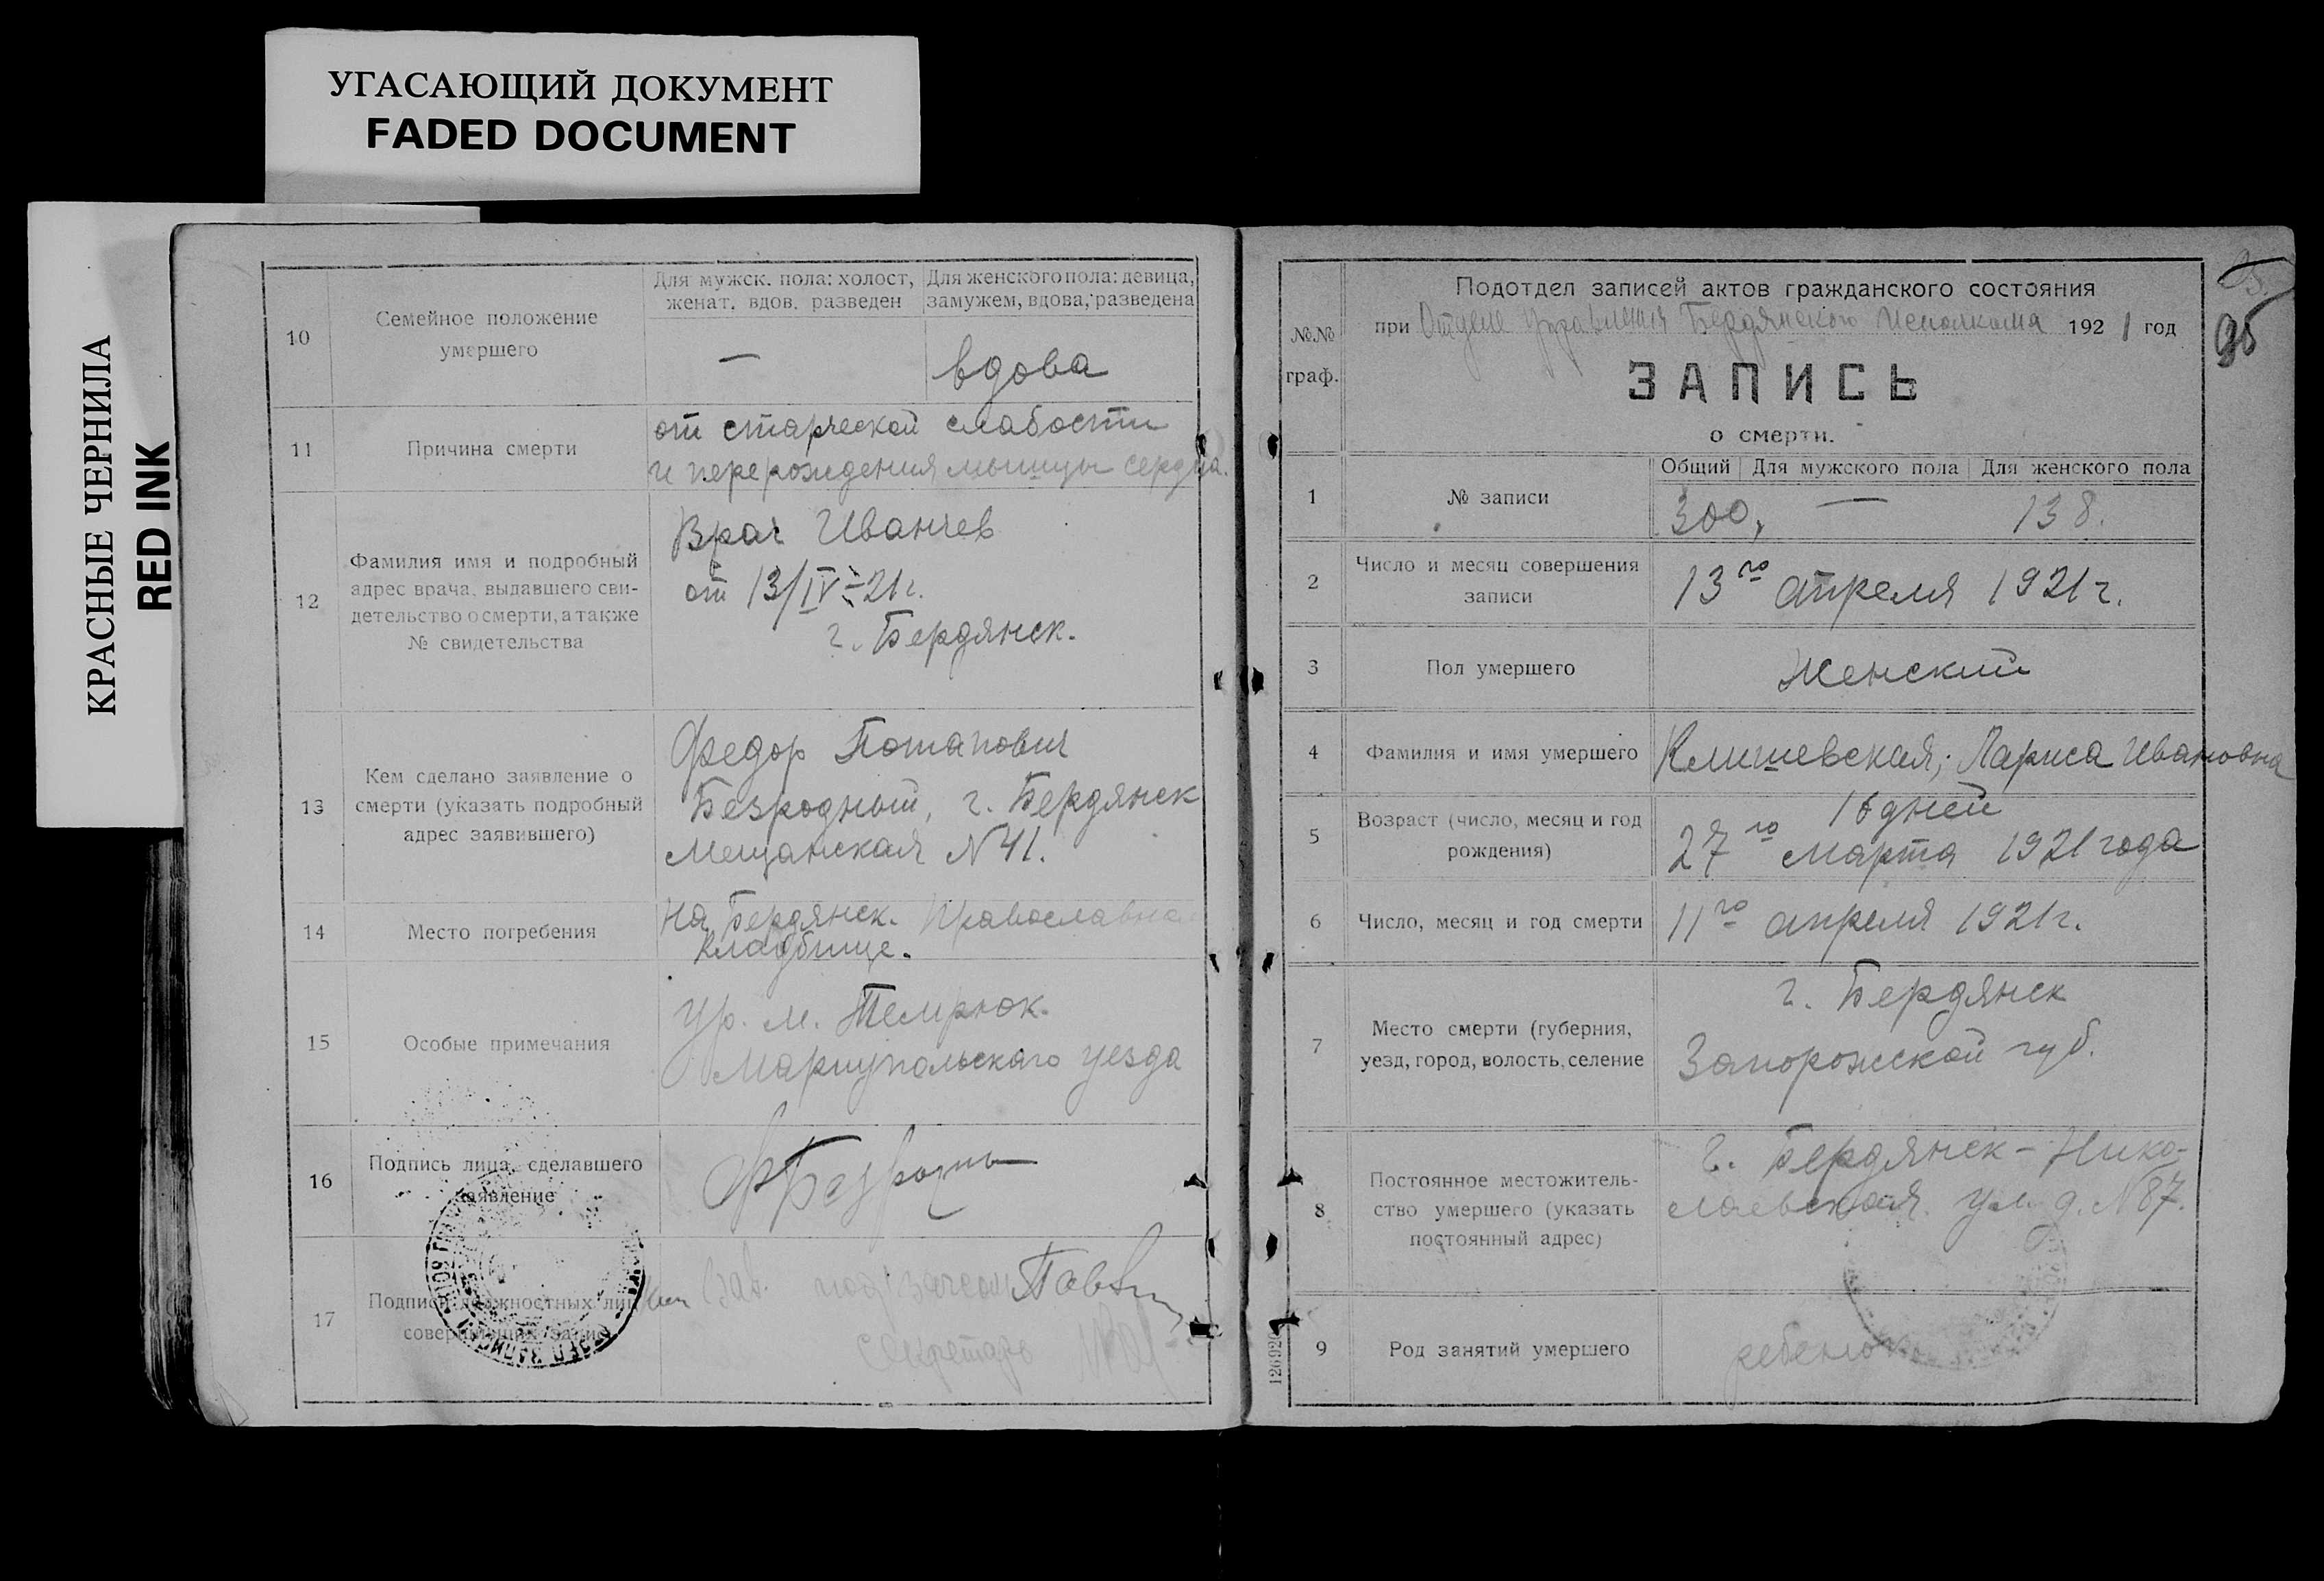 УГАСАЮЩИЙ ДОКУМЕНТ
FADED DOCUMENT
КРАСНЫЕ ЧЕРНИЛА
RED INK
10
Семейное положение
умершего
Для мужск. пола: холост,
женат, вдов, разведен
Для женского пола: девица,
замужем, вдова, разведена
—
вдова
11
Причина смерти
от старческой слабости
и перерождения мышцы сердца.
12
Фамилия имя и подробный
адрес врача, выдавшего сви-
детельство о смерти, а также
№ свидетельства
Врач Иванчев
от 13/IV-21г.
г. Бердянск.
13
Кем сделано заявление о
смерти (указать подробный
адрес заявившего)
Федор Потапович
Безродный, г. Бердянск
Мещанская N 41.
14
Место погребения
на Бердянск. Православна
кладбище.
15
Особые примечания
Ур. м. Темрюк.
Мариупольскаго уезда
16
Подпись лица, сделавшего
заявление
17
Подписи должностных лиц,
совершивших запись
Зав.
Секретарь
Подотдел записей актов гражданского состояния
при Отделе Управления Бердянского Исполкома 1921 год
95
№№
граф.
ЗАПИСЬ
о смерти.
1
№ записи
Общий
Для мужского пола
Для женского пола
300,
—
138.
2
Число и месяц совершения
записи
13го апреля 1921г.
3
Пол умершего
Женский
4
Фамилия и имя умершего
Клишевская, Лариса Ивановна
5
Возраст (число, месяц и год
рождения)
16 дней
27го марта 1921 года
6
Число, месяц и год смерти
11го апреля 1921г.
7
Место смерти (губерния,
уезд, город, волость, селение
г. Бердянск
Запорожской губ.
8
Постоянное местожитель-
ство умершего (указать
постоянный адрес)
г. Бердянск - Нико-
лаевская ул. д. N 87.
9
Род занятий умершего
ребенок
126920